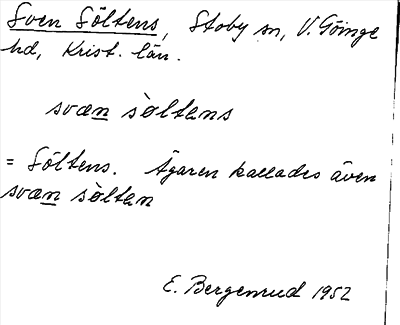 Sven Söltens, Stoby sn, V. Göinge
hd, Krist. län.
svæn sòltans
= Söltens. Ägaren kallades även
svæn sòltan
E. Bergenrud 1952